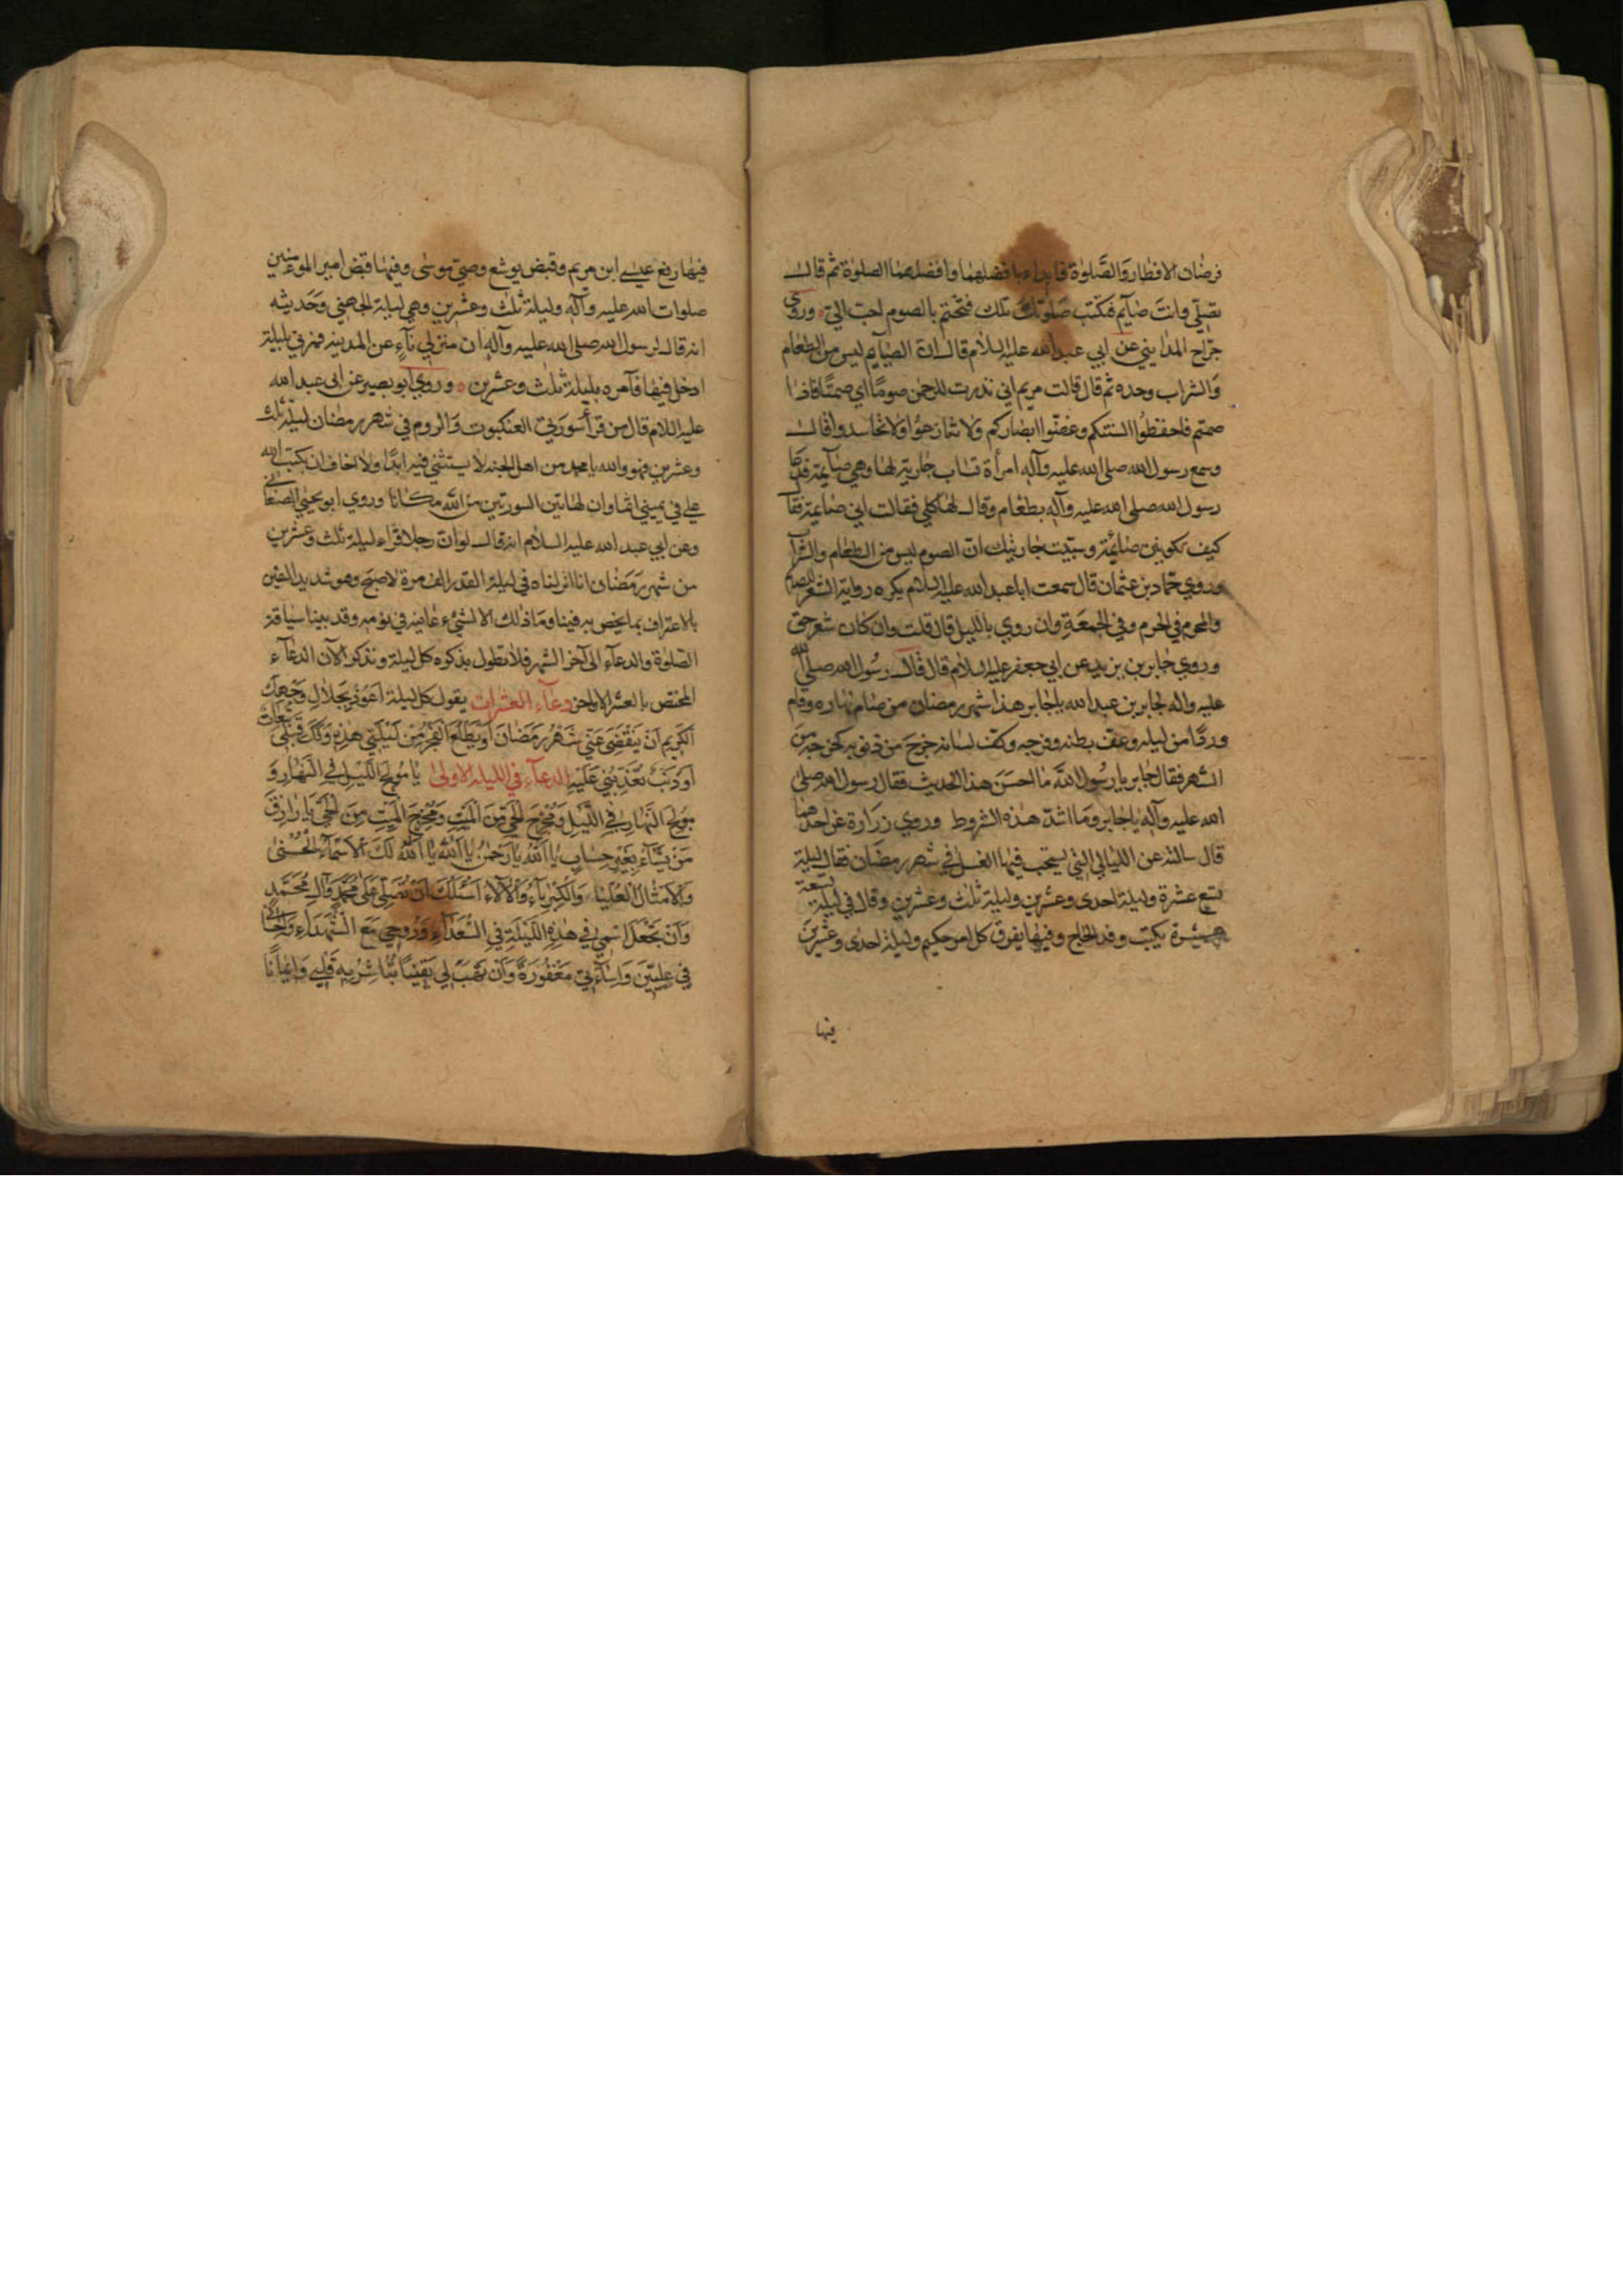 فرضان الافطار والصلوة فابداء بافضلهما وافضلهما الصلوة ثم قال
تصلي وانت صايم فتكتب صلوتك تلك فتختم بالصوم احب الي وروى
جراح المدايني عن ابي عبد الله عليه السلام قال ان الصيام ليس من الطعام
والشراب وحده ثم قال قالت مريم اني نذرت للرحمن صوما اي صمتا فاذا
صمتم فاحفظوا السنتكم وغضوا ابصاركم ولا تنازعوا ولا تحاسدوا قال
وسمع رسول الله صلى الله عليه وآله امرأة تساب جارية لها وهي صايمة فدعا
رسول الله صلى الله عليه وآله بطعام وقال لها كلي فقالت اني صايمة فقا
كيف تكونين صائمة وسببت جاريتك ان الصوم ليس من الطعام والشراب
وروي حماد بن عثمان قال سمعت ابا عبد الله عليه السلام يكره رواية الشعر للصايم
والمحرم في الحرم وفي الجمعة وان روي بالليل قال قلت وان كان شعر حق
وروي جابر بن يزيد عن ابي جعفر عليه السلام قال قال رسول الله صلى الله
عليه وآله لجابر بن عبد الله يا جابر هذا شهر رمضان من صام نهاره وقام
وردا من ليله وعف بطنه وفرجه وكف لسانه خرج من ذنوبه كخروجه من
الشهر فقال جابر يا رسول الله ما احسن هذا الحديث فقال رسول الله صلى
الله عليه وآله يا جابر وما اشد هذه الشروط وروي زرارة عن احدهما
قال سالته عن الليالي التي يستحب فيها الغسل في شهر رمضان فقال ليلة
تسع عشرة وليلة احدى وعشرين وليلة ثلث وعشرين وقال في ليلة تسعة
عشرة يكتب وفد الحاج وفيها يفرق كل امر حكيم وليلة احدى وعشرين
فيها
فيها رفع عيسى ابن مريم وقبض يوشع وصي موسى وفيها قبض امير المومنين
صلوات الله عليه وآله وليلة ثلث وعشرين وهي ليلة الجهني وحديثه
انه قال لرسول الله صلى الله عليه وآله ان منزلي نآء عن المدينة فمرني بليلة
ادخل فيها فآمره بليلة ثلث وعشرين وروي ابو بصير عن ابى عبد الله
عليه السلام قال من قرأ سورتي العنكبوت والروم في شهر رمضان ليلة ثلث
وعشرين فهو والله يا محمد من اهل الجنة لا يستثني فيه ابدا ولا اخاف ان يكتب الله
علي في يميني اثما وان لهاتين السورتين من الله مكانا وروي ابو يحيى الصنعاني
وعن ابي عبد الله عليه السلام انه قال لو ان رجلا قراء ليلة ثلث وعشرين
من شهر رمضان انا انزلناه في ليلة القدر الف مرة لاصبح وهو شديد اليقين
بالاعتراف بما يخص به فينا وما ذلك الا لشيء عاينه في نومه وقد بينا سياقة
الصلوة والدعآء الى آخر الشهر فلا نطول بذكره كل ليلة ونذكر الآن الدعآء
المختص بالعشر الاواخر دعآء العشرات يقول كل ليلة اعوذ بجلال وجهك
الكريم ان ينقضي عني شهر رمضان او يطلع الفجر من ليلتي هذه ولك قبلي تبعات
او ذنب تعذبني عليه الدعآء في الليلة الاولى يا مولج الليل في النهار و
مولج النهار في الليل ومخرج الحي من الميت ومخرج الميت من الحي يا رازق
من يشآء بغير حساب يا الله يا رحمن يا الله يا الله لك الاسمآء الحسنى
والامثال العليا والكبريآء والآلاء اسئلك ان تصلي على محمد وآل محمد
وان تجعل اسمي في هذه الليلة في السعدآء وروحي مع الشهداء واحساني
في عليين واسآءتي مغفورة وان تهب لي يقينا تباشر به قلبي وايمانا